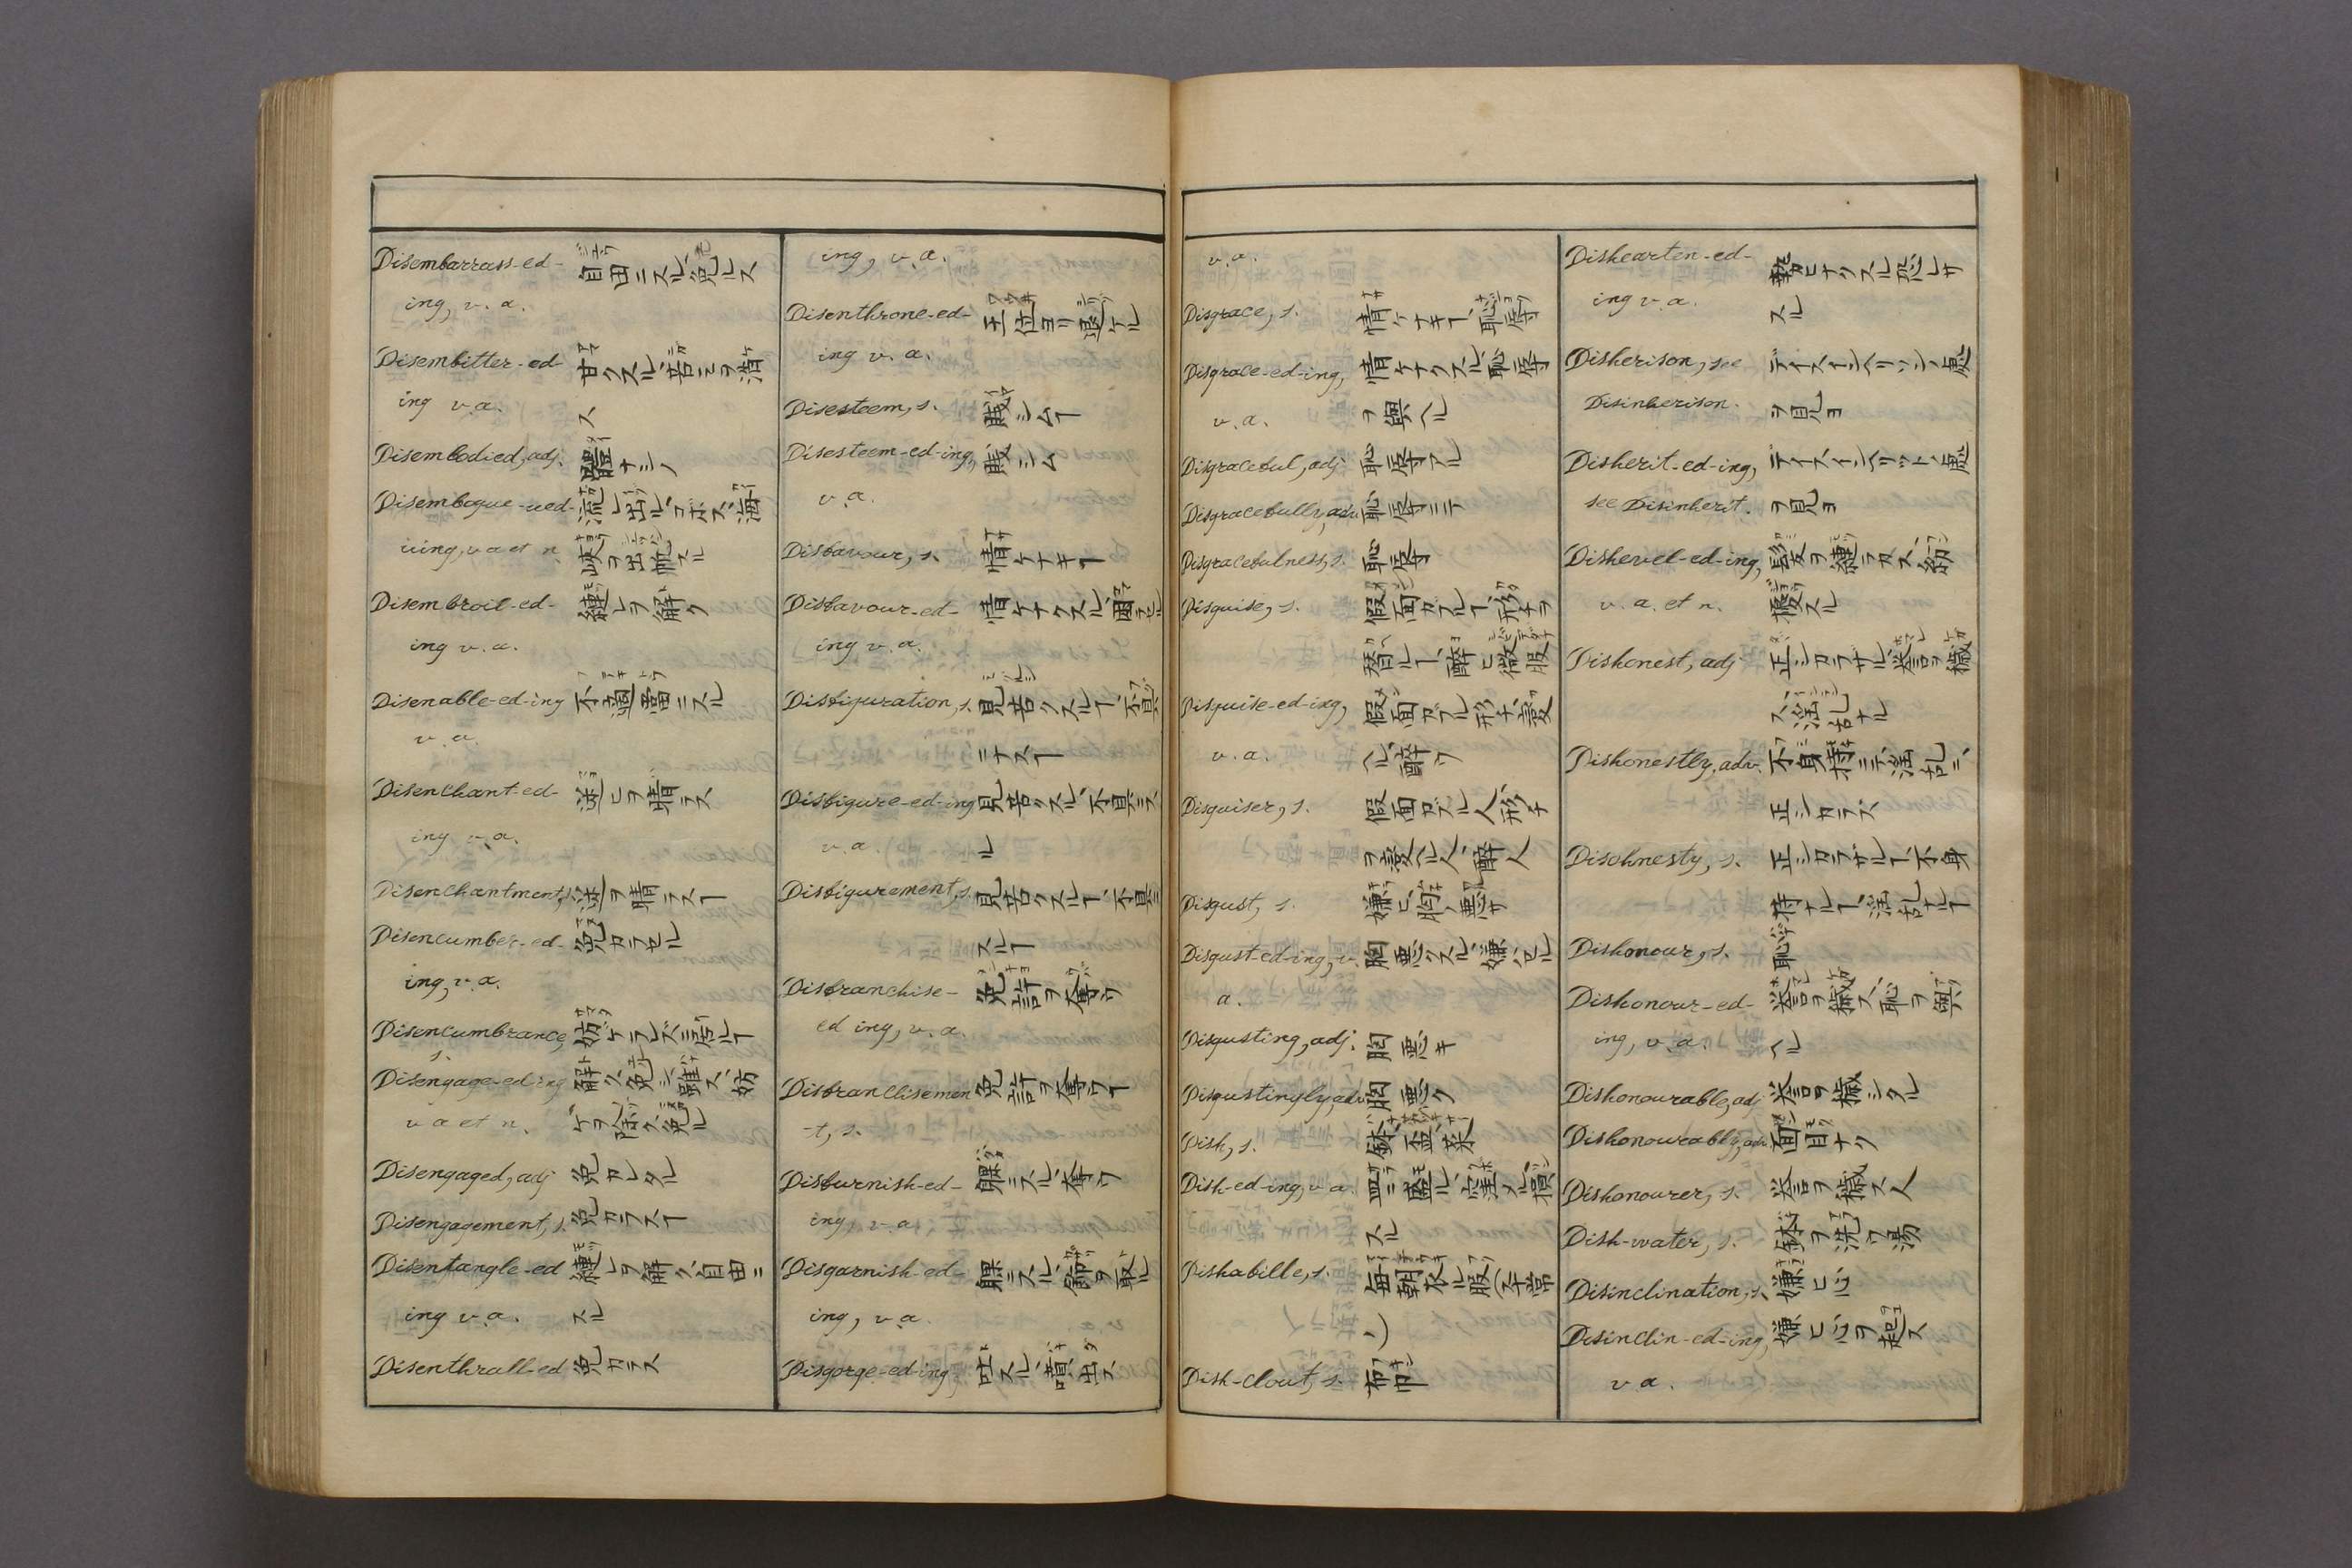 Disembarrass-ed- 自由ニスル、免ルス
ing, v. a.
Disembitter-ed- 甘クスル、苦ミヲ消
ing v.a. ス
Disembodied, adj. 體ナシノ
Disembogue-ued- 流レ出ル、コボス、海
uing, v a et n. 峡ヲ出帆スル
Disembroil-ed- 縺レヲ解ク
ing v.a.
Disenable-ed-ing 不適當ニスル
v.a.
Disenchant-ed- 迷ヒヲ晴ラス
ing v.a.
Disenchantment, s. 迷ヲ晴ラスヿ
Disencumber-ed- 免カラセル
ing, v.a.
Disencumbrance, 妨ケラレズニ居ルヿ
s.
Disengage-ed-ing 解ク、免シ、離ス、妨
v a et n. ケヲ除ク、免ル
Disengaged, adj 免カレタル
Disengagement, s. 免カラスヿ
Disentangle-ed 縺レヲ解ク、自由ニ
ing v.a. スル
Disenthrall-ed 免カラス
ing, v.a.
Disenthrone-ed- 王位ヨリ退ケル
ing v.a.
Disesteem, s. 賎シムヿ
Disesteem-ed-ing, 賎シム
v.a.
Disfavour, s. 情ケナキヿ
Disfavour-ed- 情ケナクスル、
ing v.a.
Disfiguration, s. 見苦クスルヿ、不具
ニナスヿ
Disfigure-ed-ing 見苦クスル、不具ニス
v.a. ル
Disfigurement, s. 見苦クスルヿ、不具ニ
スルヿ
Disfranchise- 免許ヲ奪ウ
ed ing, v.a.
Disfranchisemen 免許ヲ奪ウヿ
-t, s.
Disfurnish-ed- 裸ニスル、奪ウ
ing, v.a
Disgarnish-ed- 裸ニスル、飾ヲ取ル
ing, v.a.
Disgorge-ed-ing, 吐スル、噴出ス
v.a.
Disgrace, s. 情ケナキヿ、恥辱
Disgrace-ed-ing, 情ケナクスル、恥辱
v.a. ヲ與ヘル
Disgraceful, adj. 恥辱アル
Disgracefully, adv. 恥辱ニテ
Disgracefulness, s. 恥辱
Disguise, s. 假面カブルヿ、形チヲ
替ルヿ、醉ヒ、微服
Disguise-ed-ing, 假面カブル、形チ、変
v.a. ヘル、醉ウ
Disguiser, s. 假面カブル人、形チ
ヲ変ヘル人、醉人
Disgust, s. 嫌ヒ、胸ノ悪サ
Disgust-ed-ing, v. 胸悪クスル、嫌ハセル
a.
Disgusting, adj. 胸悪キ
Disgustingly, adv. 胸悪ク
Dish, s. 鉢、盃、菜
Dish-ed-ing, v a. 皿ニ盛ル、窪メル、損
スル
Dishabille, s. 毎朝衣ル服(平常
ノ)
Dish-clout, s. 布巾
Dishearten-ed- 勢ヒナクスル、恐レサ
ing v a. スル
Disherison, see ディスインヘリソンノ處
Disinherison. ヲ見ヨ
Disherit-ed-ing, ディスインヘリットノ處
see Disinherit. ヲ見ヨ
Dishevel-ed-ing, 髪ヲ縺ラカス、紛
v.a. et n. 擾スル
Dishonest, adj 正シカラザル、誉ヲ穢
ス、淫乱ナル
Dishonestly, adv. 不身持ニテ、淫乱ニ、
正シカラズ
Disohnesty, s. 正シカラザルヿ、不身
持ナルヿ、淫乱ナルヿ
Dishonour, s. 恥
Dishonour-ed- 誉ヲ穢ス、恥ヲ與
ing, v.a. ヘル
Dishonourable, adj 誉ヲ穢シタル
Dishonourably, adv. 面目ナク
Dishonourer, s. 誉ヲ穢ス人
Dish-water, s. 鉢ヲ洗ウ湯
Disinclination, s. 嫌ヒ心
Disinclin-ed-ing, 嫌ヒ心ヲ起ス
v a.